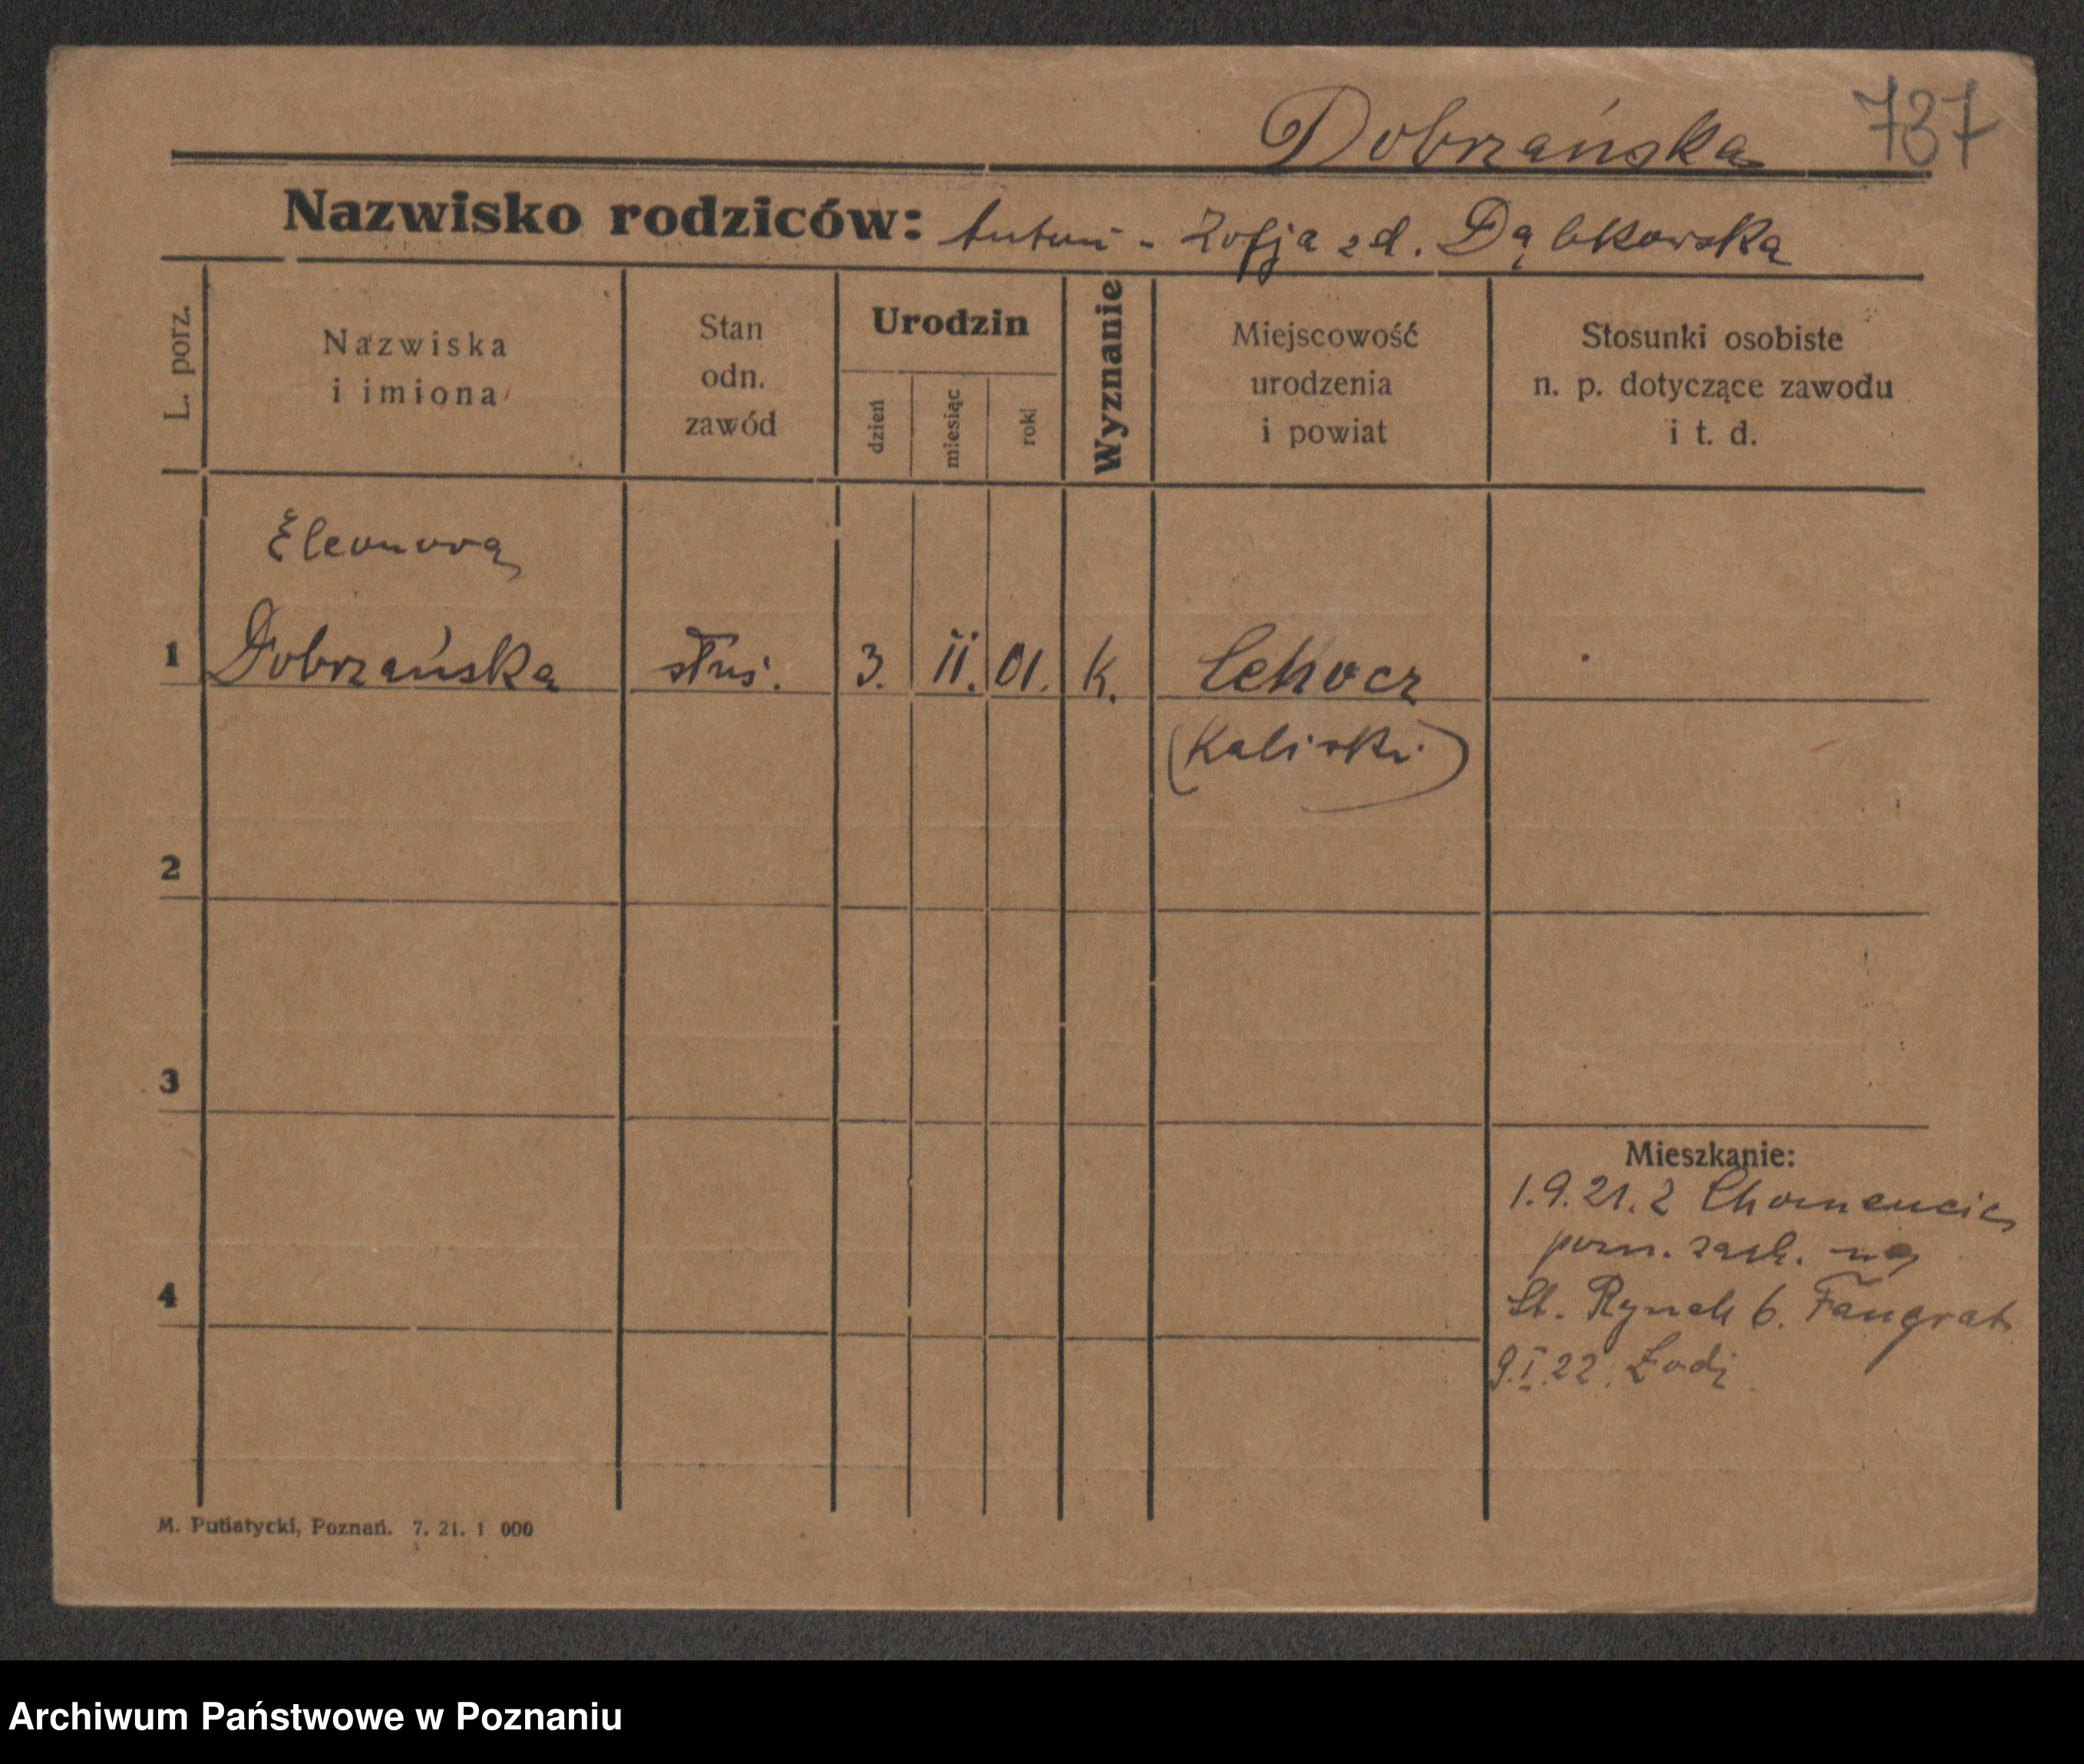 Dobrzańska 737
Nazwisko rodziców: Antoni - Zofja zd. Dąbkowska
L. porz.
Nazwiska
i imiona
Stan
odn.
zawód
Urodzin
dzień
miesiąc
rok
Wyznanie
Miejscowość
urodzenia
i powiat
Stosunki osobiste
n. p. dotyczące zawodu
i t. d.
Eleonora
1 Dobrzańska służ. 3. II. 01. k.
(Kaliski)
2
3
Mieszkanie:
1.9.21. z
pom. na
St. Rynek 6.
4
9.I.22. Łodź
M. Putiatycki, Poznań. 7. 21. 1 000
Archiwum Państwowe w Poznaniu